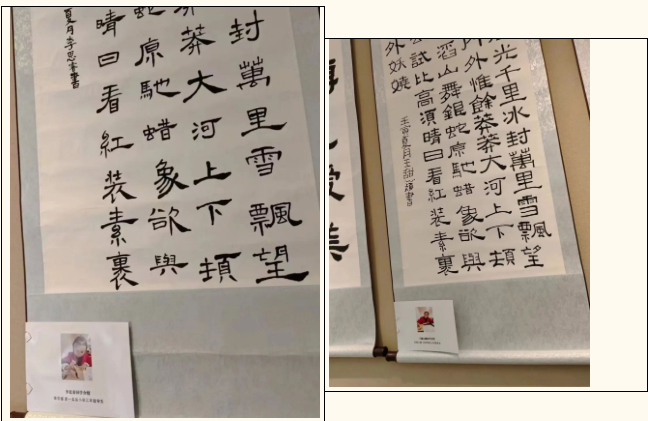 封萬里雪飄望
莽大河上下頓
蛇原馳蜡象欲與
晴日看紅裝素裹
夏月李思書
光千里冰封萬里雪飄望
外惟餘莽莽大河上下頓
滔山舞銀蛇原馳蜡象欲與
公試比高須晴日看紅裝素裹
外妖嬈
壬寅夏月王涵書